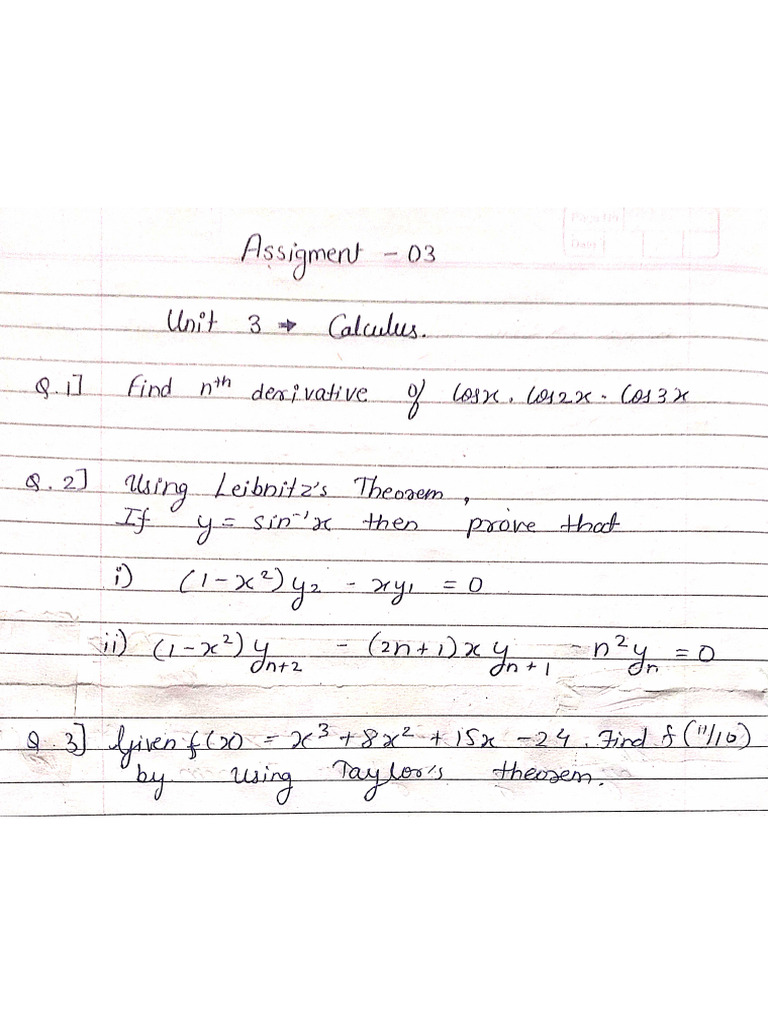 Page No
Date
Assigment - 03
Unit 3 → Calculus.
Q.1] Find nᵗʰ derivative of cosx. cos2x. cos3x
Q.2] Using Leibnitz's Theorem,
If y = sin⁻¹x then prove that
i) (1-x²)y₂ - xy₁ = 0
ii) (1-x²)yₙ₊₂ - (2n+1)xyₙ₊₁ - n²yₙ = 0
Q.3] Given f(x) = x³+8x²+15x-24. Find f(11/10)
by using Taylor's theorem.